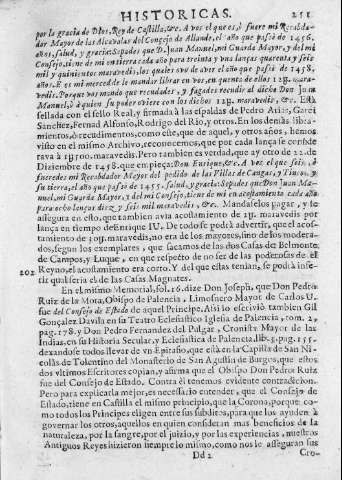 HISTORICAS. 211
por la gracia de Dios, Rey de Castilla, &c. A vos el que es, ò fuere mi Recabda-
dor Mayor de las Alcavalas del Concejo de Allande, el año que passò de 1456.
años, salud, y gracia: Sepades que D. Juan Manuel, mi Guarda Mayor, y del mi
Consejo, tiene de mi en tierra cada año para treinta y una lanças quarenta y seis
mil y quinientos maravedis, los quales ovo de aver el año que passò de 1458.
años. E es mi merced de le mandar librar en vos, en cuenta de ellos 12U. mara-
vedis. Porque vos mando que recudades, y fagades recudir al dicho Don Juan
Manuel, ò à quien su poder oviere con los dichos 12U. maravedis, &c. Está
sellada con el sello Real, y firmada à las espaldas de Pedro Arias, Garci
Sanchez, Fernād Alfonso, Rodrigo del Rio, y otros. En los demàs libra-
mientos, ò recudimentos, como este, que de aquel, y otros años, hemos
visto en el mismo Archivo, reconocemos, que por cada lança se contri-
tava à 1U500. maravedis. Pero tambien es verdad, que ay otro de 22. de
Diziembre de 1458. que empieça: Don Enrique, &c. A vos el que sois, ò
fueredes mi Recabdador Mayor del pedido de las Villas de Cangas, y Tineo, y
su tierra, el año que passò de 1455. salud, y gracia: Sepades que Don Juan Ma-
nuel, mi Guarda Mayor, y del mi Consejo, tiene de mi en acostamiento cada año
para ocho lanças diez y seis mil maravedis, &c. Mandaselos pagar, y se
assegura en esto, que tambien avia acostamiento de 2U. maravedis por
lança en tiempo de Enrique IV. De todo se podrà advertir, que el acosta-
tamiento de 40U. maravedis, no era de los mayores, sino de los modera-
dos, segun los exemplares, que sacamos de las dos Casas de Belmonte
de Campos, y Luque, que en respecto de no ser de las poderosas de el
203 Reyno, el acostamiento era corto. Y del que estas tenian, se podrà infe-
rir qual seria el de las Casas Magnates.
En el mismo Memorial, fol. 16. dize Don Joseph, que Don Pedro
Ruiz de la Mota, Obispo de Palencia, Limosnero Mayor de Carlos V.
fue del Consejo de Estado de aquel Principe, Assi lo escriviò tambien Gil
Gonçalez Davila en su Teatro Eclesiastico Iglesia de Palencia, tom. 2.
pag. 178. y Don Pedro Fernandez del Pulgar, Cronista Mayor de las
Indias, en su Historia Secular, y Eclesiastica de Palencia, lib. 3. pag. 155.
dandose todos llevar de vn Epitafio, que està en la Capilla de San Ni-
colàs de Tolentino del Monasterio de San Agustin de Burgos, que estos
dos vltimos Escritores copian, y afirma que el Obispo Don Pedro Ruiz
fue del Consejo de Estado. Contra èl tenemos evidente contradicion.
Pero para explicarla mejor, es necessario entender, que el Consejo de
Estado, tiene en Castilla el mismo principio, que la Corona, porque: co-
mo todos los Principes eligen entre sus subditos, para que los ayuden à
governar los otros, aquellos en quien consideran mas beneficios de la
naturaleza, por la sangre, por el juizio, y por las experiencias, nuestros
Antiguos Reyes hizieron siempre lo mismo, como nos lo asseguran sus
Dd 2 Cro-